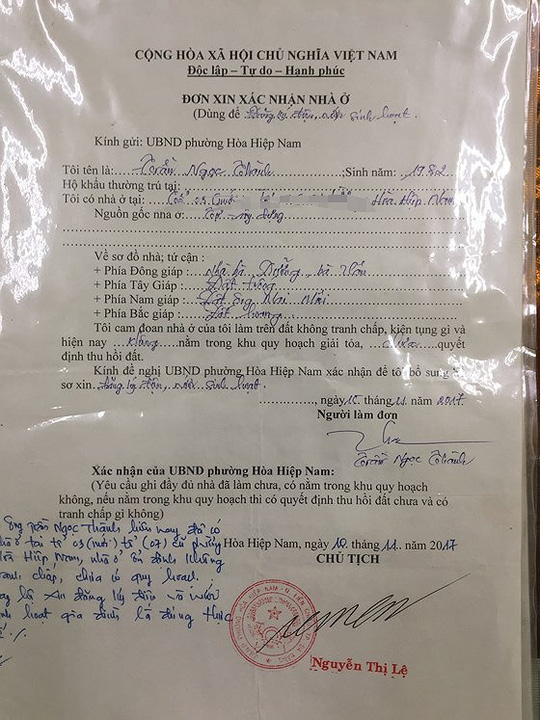 CỘNG HÒA XÃ HỘI CHỦ NGHĨA VIỆT NAM
Độc lập – Tự do – Hạnh phúc
ĐƠN XIN XÁC NHẬN NHÀ Ở
(Dùng để Đăng ký điện, nước sinh hoạt.
Kính gửi: UBND phường Hòa Hiệp Nam
Tôi tên là: Trần Ngọc Thành Sinh năm: 1982
Hộ khẩu thường trú tại:
Tôi có nhà ở tại: Tổ 03 Hòa Hiệp Nam
Nguồn gốc nhà ở:
Về sơ đồ nhà; tứ cận :
+ Phía Đông giáp : Nhà bà Dưỡng, bà
+ Phía Tây Giáp : Đất trống
+ Phía Nam giáp : Đất ông Mai
+ Phía Bắc giáp : Đất
Tôi cam đoan nhà ở của tôi làm trên đất không tranh chấp, kiện tụng gì và
hiện nay không nằm trong khu quy hoạch giải tỏa, chưa quyết
định thu hồi đất.
Kính đề nghị UBND phường Hòa Hiệp Nam xác nhận để tôi bổ sung hồ
sơ xin đăng ký điện, nước sinh hoạt.
, ngày 10 tháng 11 năm 2017
Người làm đơn
Trần Ngọc Thành
Xác nhận của UBND phường Hòa Hiệp Nam:
(Yêu cầu ghi đầy đủ nhà đã làm chưa, có nằm trong khu quy hoạch
không, nếu nằm trong khu quy hoạch thì có quyết định thu hồi đất chưa và có
tranh chấp gì không)
Ông Trần Ngọc Thành hiện nay đã có
nhà ở tại tổ 03 (mới) tổ (07) cũ phường
Hòa Hiệp Nam, nhà ở ổn định không
tranh chấp, chưa có quy hoạch.
nay là xin đăng ký điện và nước
sinh hoạt gia đình là đúng thực
tế
Hòa Hiệp Nam, ngày 10 tháng 11 năm 2017
CHỦ TỊCH
Nguyễn Thị Lệ